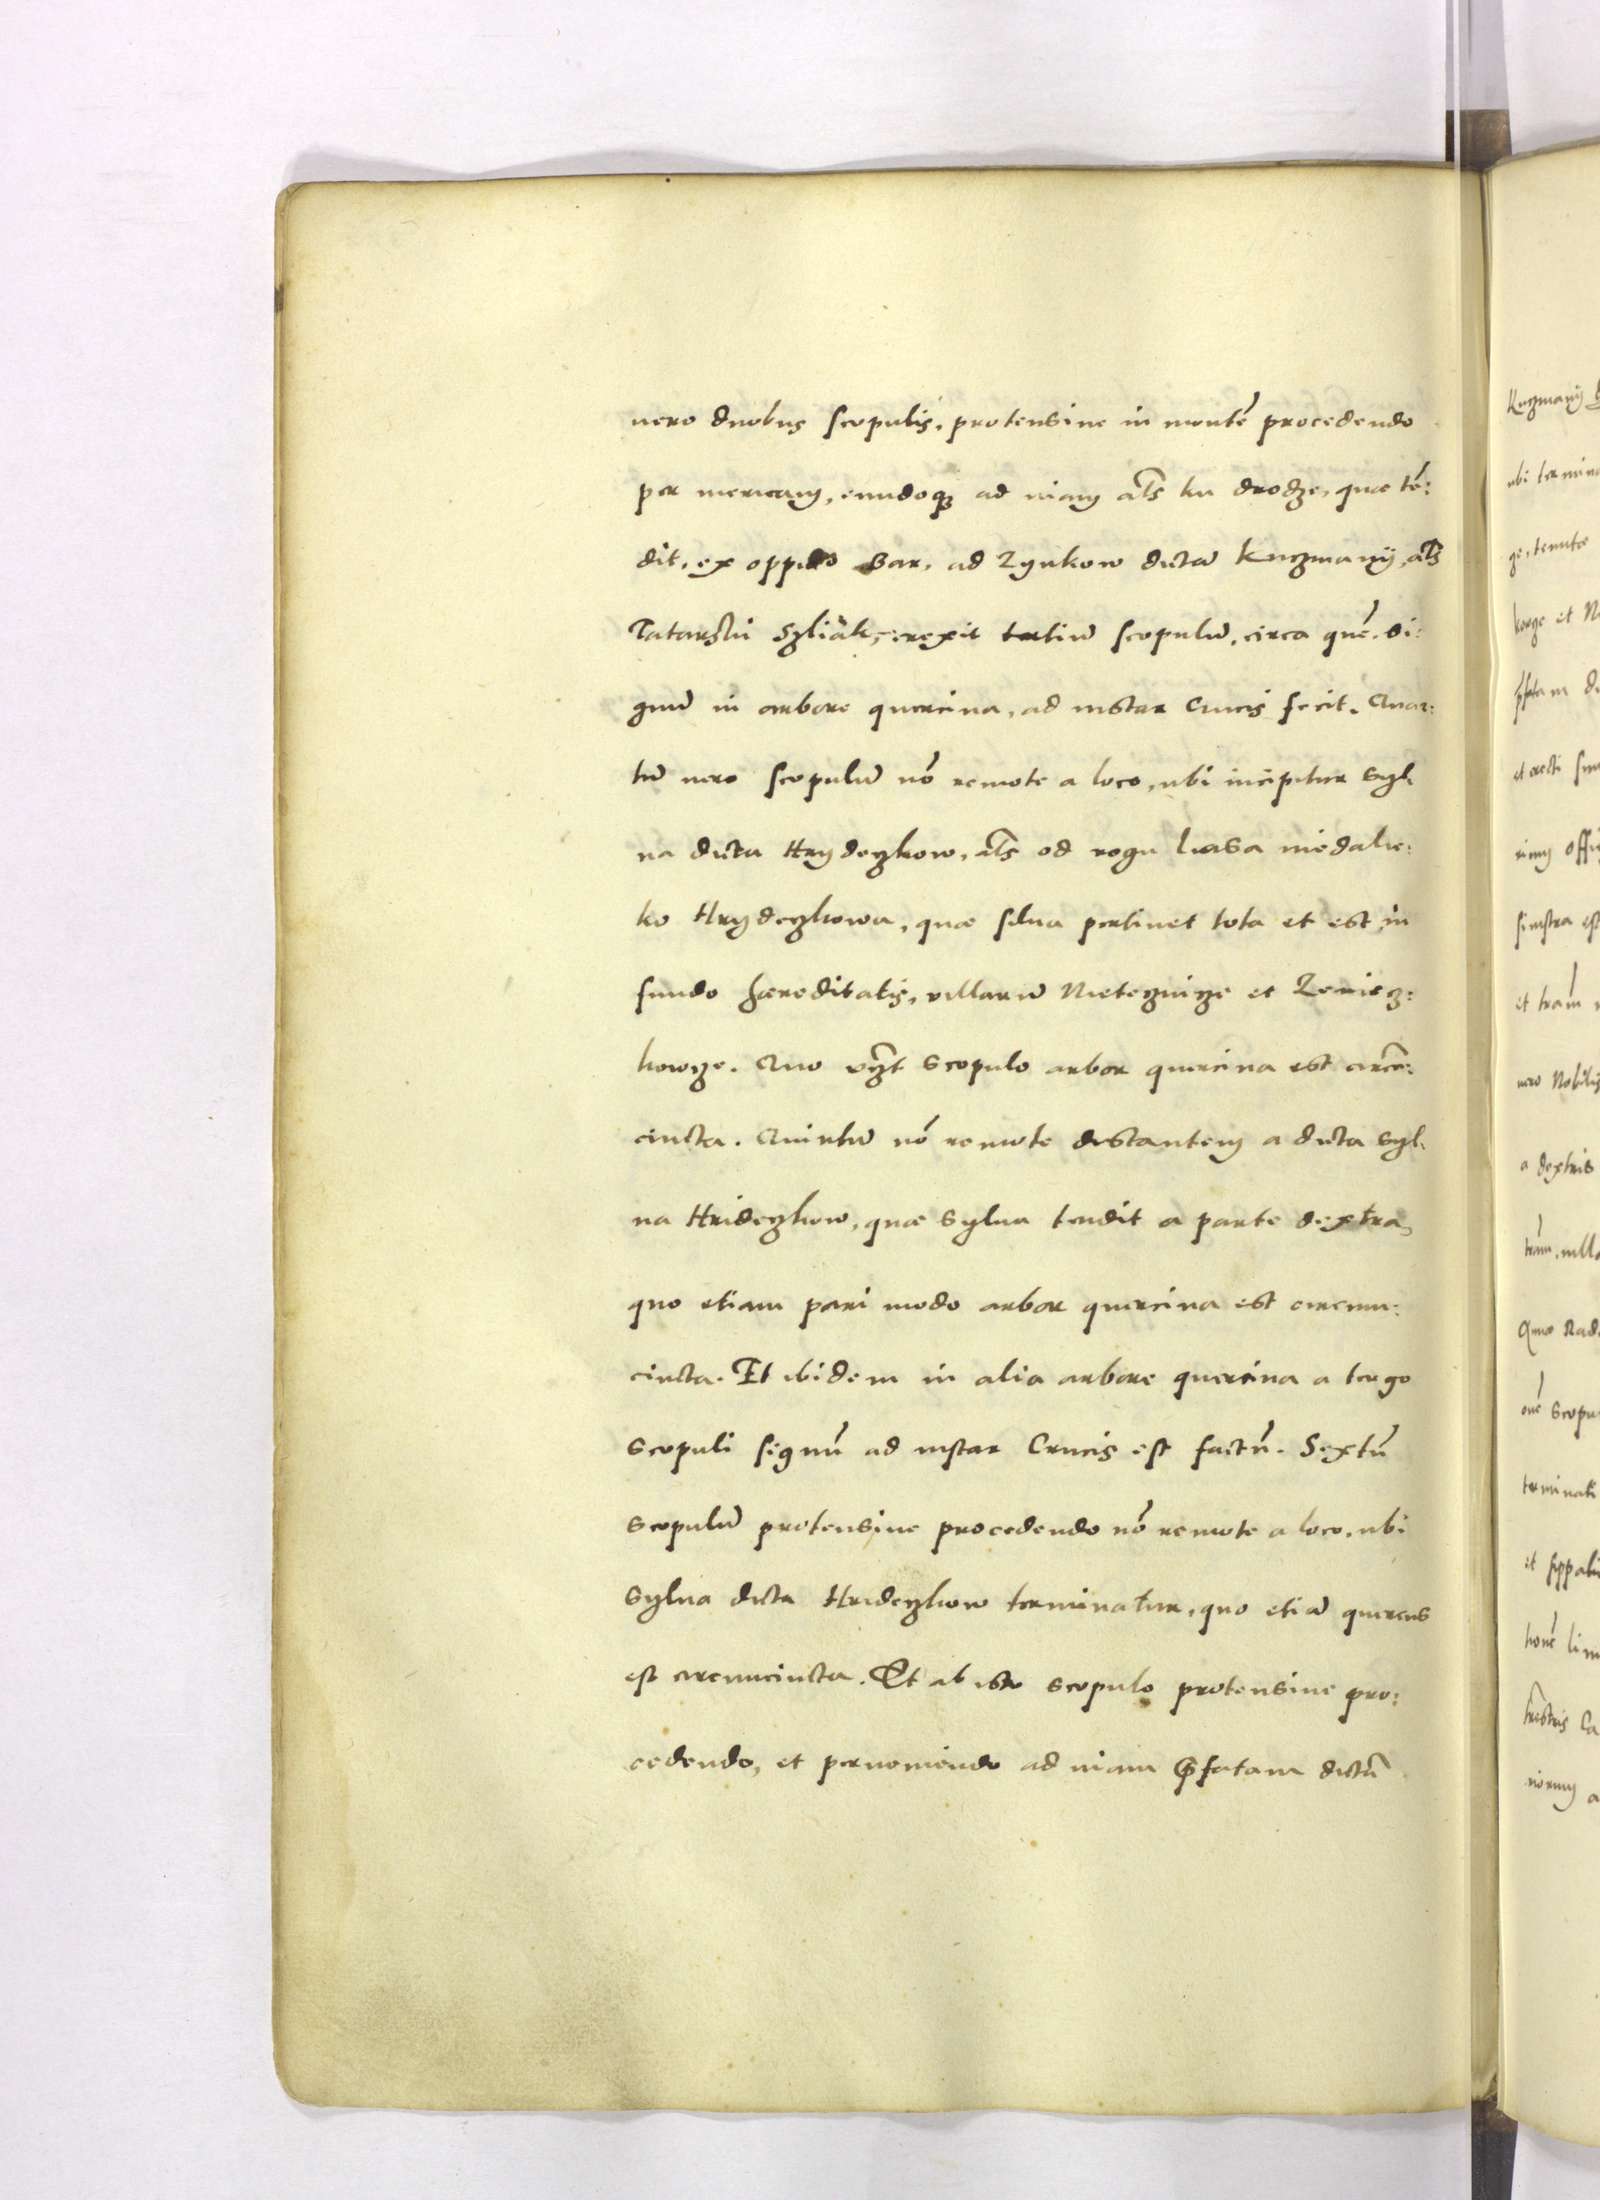 uero duobus scopulis, protensiue in montē procedendo
per mericam, eundoq3 ad uiam als ku drodze, quae tē:
dit, ex oppido Bar, ad Zynkow dictā Kuczmanÿ, als
Tatarski Szliak, erexit tertiū scopulū, circa quē, si:
gnū in arbore quercina, ad instar Crucis fecit. Quar:
tū uero scopulū nō remote a loco, ubi incipitur Syl:
ua dicta Hrydeczkow, als od rogu liassa niedalie:
ko Hrydeczkowa, quae silua pertinet tota et est in
fundo haereditatis, uillarū Nieteczincze et
howcze. Quo scopulo arbor quercina est circū:
cincta. Quintū nō remote distantem a dicta Syl:
ua Hrideczkow, quae Sylua tendit a parte dextra,
quo etiam pari modo arbor quercina est circum:
cincta. Et ibidem in alia arbore quercina a tergo
scopuli signū ad instar Crucis est factū. Sextū
scopulū protensiue procedendo nō remote a loco, ubi
Sylua dicta Hrideczkow terminatur, quo etiā quercus
est circumcincta. Et ab isto scopulo protensiue pro:
cedendo, et perueniendo ad uiam p̄fatam dictā
Kuczmanÿ
ubi termina
ge, tenutae
et erecti
sinistra est
uero Nobilis
a dextris
Quae Rad
scopu
terminati